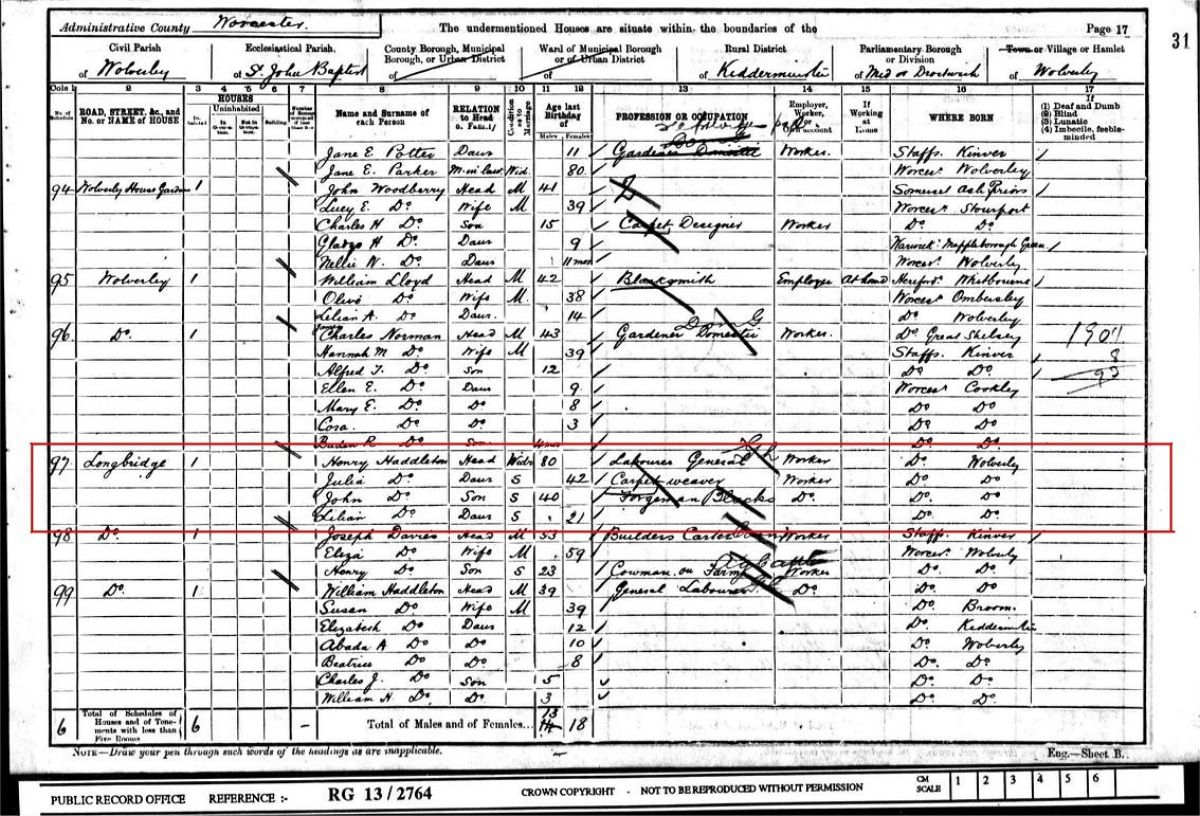 Administrative County Worcester. The undermentioned Houses are situate within the boundaries of the Page 17
31
Civil Parish of Wolverley Ecclesiastical Parish, of St. John Baptist County Borough, Municipal Borough, or Urban District of Ward of Municipal Borough or of Urban District of Rural District of Kidderminster Parliamentary Borough or Division of Mid or Droitwich Town or Village or Hamlet of Wolverley
Cols 1 2 3 4 5 6 7 8 9 10 11 12 13 14 15 16 17
No. of Schedule ROAD, STREET, &c., and No. or NAME of HOUSE HOUSES Uninhabited Building Name and Surname of each Person RELATION to Head of Family Condition as to Marriage Age last Birthday of Males Females PROFESSION OR OCCUPATION Employer, Worker, or Own account If Working at Home WHERE BORN If (1) Deaf and Dumb (2) Blind (3) Lunatic (4) Imbecile, feeble-minded
Jane E. Potter Daur 11 Staffs. Kinver
Jane E. Parker M. in law Wid. 80 Gardener Domestic Worker. Worcesr Wolverley
94 Wolverley House Gardens 1 John Woodberry Head M 41 Somerset Ash Priors
Lucy E. Do Wife M 39 Worcesr Stourport
Charles H Do Son 15 Carpet Designer Worker Do Do
Gladys H Do Daur 9 Warwick: Mappleborough Green
Nellie W. Do Daur 11 mos Worcesr Wolverley
95 Wolverley 1 William Lloyd Head M 42 Blacksmith Employer At home Hereford. Whitbourne
Olive Do Wife M. 38 Worcesr Ombersley
Lilian A. Do Daur. 14 Do Wolverley
96 Do. 1 Charles Norman Head M 43 Gardener Domestic Worker. Do Great Shelsley 1901
Hannah M Do Wife M 39 Staffs. Kinver 8
Alfred J. Do Son 12 Do Do 93
Ellen E. Do Daur 9 Worcesr Cookley
Mary E. Do Do 8 Do Do
Cora. Do Do 3 Do Do
R Do Son 4 mos Do Do
97 Longbridge 1 Henry Haddleton Head Widr 80 Labourer General Worker Do Wolverley
Julia Do Daur S 42 Carpet weaver Worker Do Do
John Do Son S 40 Forgeman Blacks Do. Do. Do
Lilian Do Daur S 21 Do. Do.
98 Do. 1 Joseph Davies Head M 53 Builders Carter Worker Staffs. Kinver
Eliza Do Wife M 59 Worcesr Wolverley
Henry Do Son S 23 Cowman on Farm Worker Do. Do.
99 Do. 1 William Haddleton Head M 39 General Labourer Do Do. Do
Susan Do Wife M 39 Do. Broom.
Elizabeth Do Daur 12 Do. Kidderminster
Abada A Do Do 10 Do Wolverley
Beatrice Do Do 8 Do. Do.
Charles J. Do Son 5 Do. Do.
William H. Do. Do 3 Do Do.
6 Total of Schedules of Houses and of Tenements with less than Five Rooms 6 – Total of Males and of Females... 18
NOTE—Draw your pen through such words of the headings as are inapplicable. Eng.—Sheet B.
PUBLIC RECORD OFFICE REFERENCE :- RG 13/2764 CROWN COPYRIGHT - NOT TO BE REPRODUCED WITHOUT PERMISSION CM SCALE 1 2 3 4 5 6